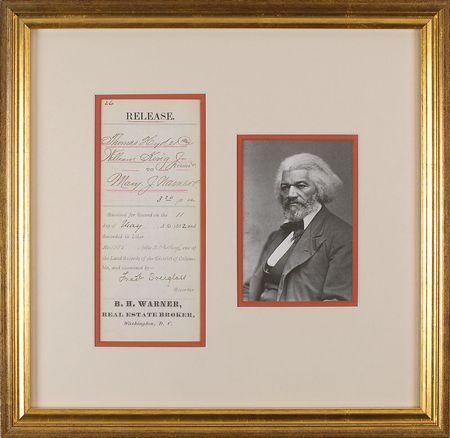 26
RELEASE.
Thomas Hyde &
William King Jr
TO
Mary J.
Received for Record on the 11
day of May A.D. 1882 and
Recorded in Liber
No. one of
the Land Records of the District of Colum-
bia, and examined by—
Fredk Douglass
Recorder
B. H. WARNER,
REAL ESTATE BROKER,
Washington, D. C.